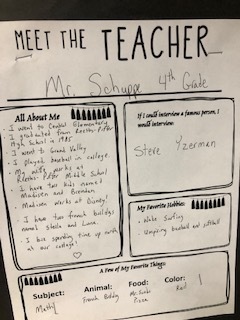 MEET THE TEACHER
Mr. Schuppe 4th Grade
All About Me
• I went to Central Elementary
• I graduated from Reeths-Puffer
High School in 1985
• I went to Grand Valley
• I played baseball in college.
• My wife works at
Reeths-Puffer Middle School
• I have two kids named
Madison and Brendan
• Madison works at Disney!
• I have two french bulldogs
named Stella and Luna.
• I like spending time up north
at our cottage!
If I could interview a famous person, I
would interview:
Steve Yzerman
My Favorite Hobbies:
- Wake Surfing
- Umpiring baseball and softball
A Few of My Favorite Things:
Subject: Animal: Food: Color:
Math French Bulldog Mr. Scribs Pizza Red